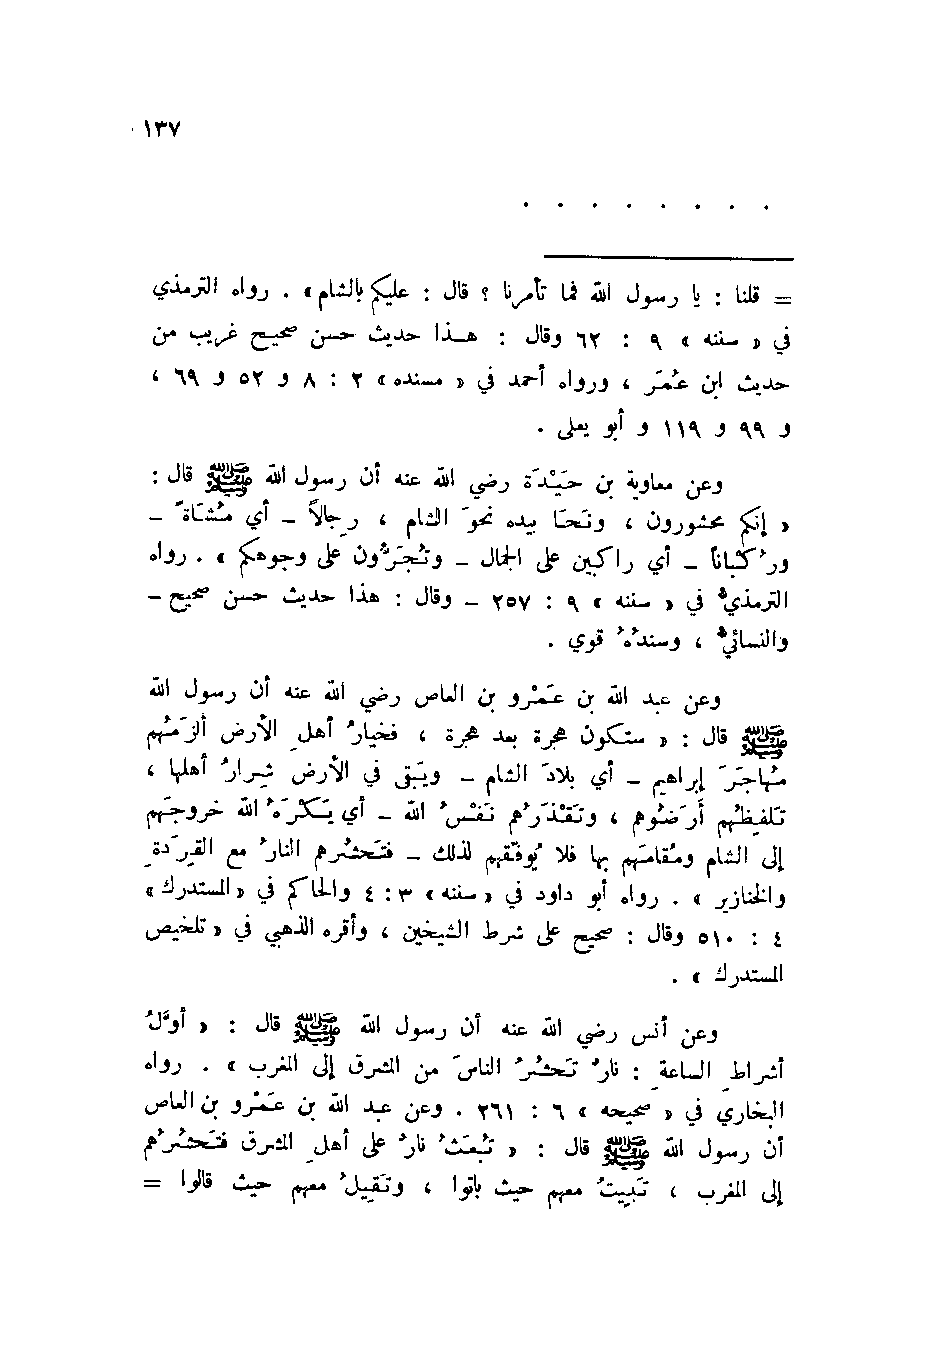 ١٣٧
. . . . . . . .
= قلنا : يا رسول الله فما تأمرنا ؟ قال : عليكم بالشام» . رواه الترمذي
في « سننه » ٩ : ٦٢ وقال : هـذا حديث حسن صحيح غريب من
حديث ابن عُمَر ، ورواه أحمد في « مسنده » ٢ : ٨ و ٥٢ و ٦٩ ،
و ٩٩ و ١١٩ و أبو يعلى .
وعن معاوية بن حَيْدَة رضي الله عنه أن رسول الله ﷺ قال :
« إنكم محشورون ، ونَحَا بيده نحوَ الشام ، رِجالاً – أي مُشاةً –
ورُكْباناً – أي راكبين على الجمال – وتُجَرُّون على وجوهكم » . رواه
الترمذيُّ في « سننه » ٩ : ٢٥٧ – وقال : هذا حديث حسن صحيح –
والنسائيُّ ، وسندُهُ قوي .
وعن عبد الله بن عَمْرو بن العاص رضي الله عنه أن رسول الله
ﷺ قال : « ستكون هجرة بعد هجرة ، فخيارُ أهلِ الأرض ألزَمُهم
مُهاجَرَ إبراهيم – أي بلادَ الشام – ويَبقى في الأرض شِرارُ أهلها ،
تَلفِظُهم أَرَضُوهم ، وتَقْذَرُهم نَفْسُ الله – أي يَكرَهُ الله خروجَهم
إلى الشام ومُقامَهم بها فلا يُوفِّقهم لذلك – فتَحشُرهم النارُ مع القِرَدةِ
والخنازير » . رواه أبو داود في « سننه » ٣ : ٤ والحاكم في « المستدرك »
٤ : ٥١٠ وقال : صحيح على شرط الشيخين ، وأقره الذهبي في « تلخيص
المستدرك » .
وعن أنس رضي الله عنه أن رسول الله ﷺ قال : « أوَّلُ
أشراطِ الساعةِ : نارٌ تَحشُرُ الناسَ من المشرق إلى المغرب » . رواه
البخاري في « صحيحه » ٦ : ٢٦١ . وعن عبد الله بن عَمْرو بن العاص
أن رسول الله ﷺ قال : « تُبعَثُ نارٌ على أهلِ المشرق فتَحشُرُهم
إلى المغرب ، تَبِيتُ معهم حيث باتوا ، وتَقِيلُ معهم حيث قالوا =